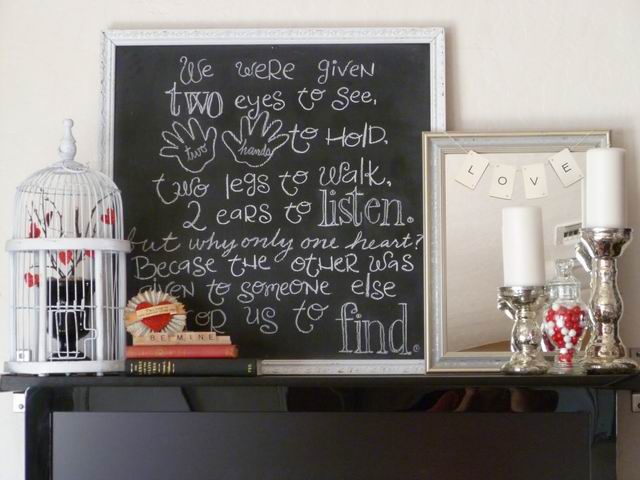 We were given
two eyes to see,
two hands to Hold,
two legs to walk,
2 ears to listen.
but why only one heart?
Becase the other was
given to someone else
for us to find.
BE MINE
LOVE